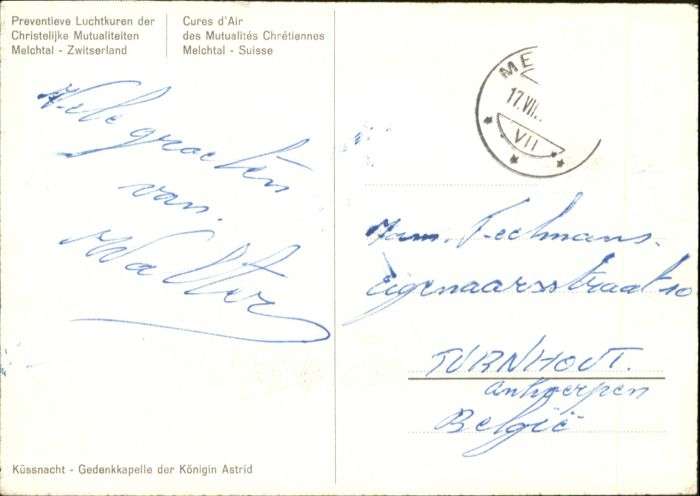 Preventieve Luchtkuren der
Christelijke Mutualiteiten
Melchtal - Zwitserland
Cures d'Air
des Mutualités Chrétiennes
Melchtal - Suisse
Vele groeten
van
Walter
ME
17.VII.
VII
Fam. Feelmans.
Eigenaarsstraat 10
TURNHOUT.
Antwerpen
België
Küssnacht - Gedenkkapelle der Königin Astrid